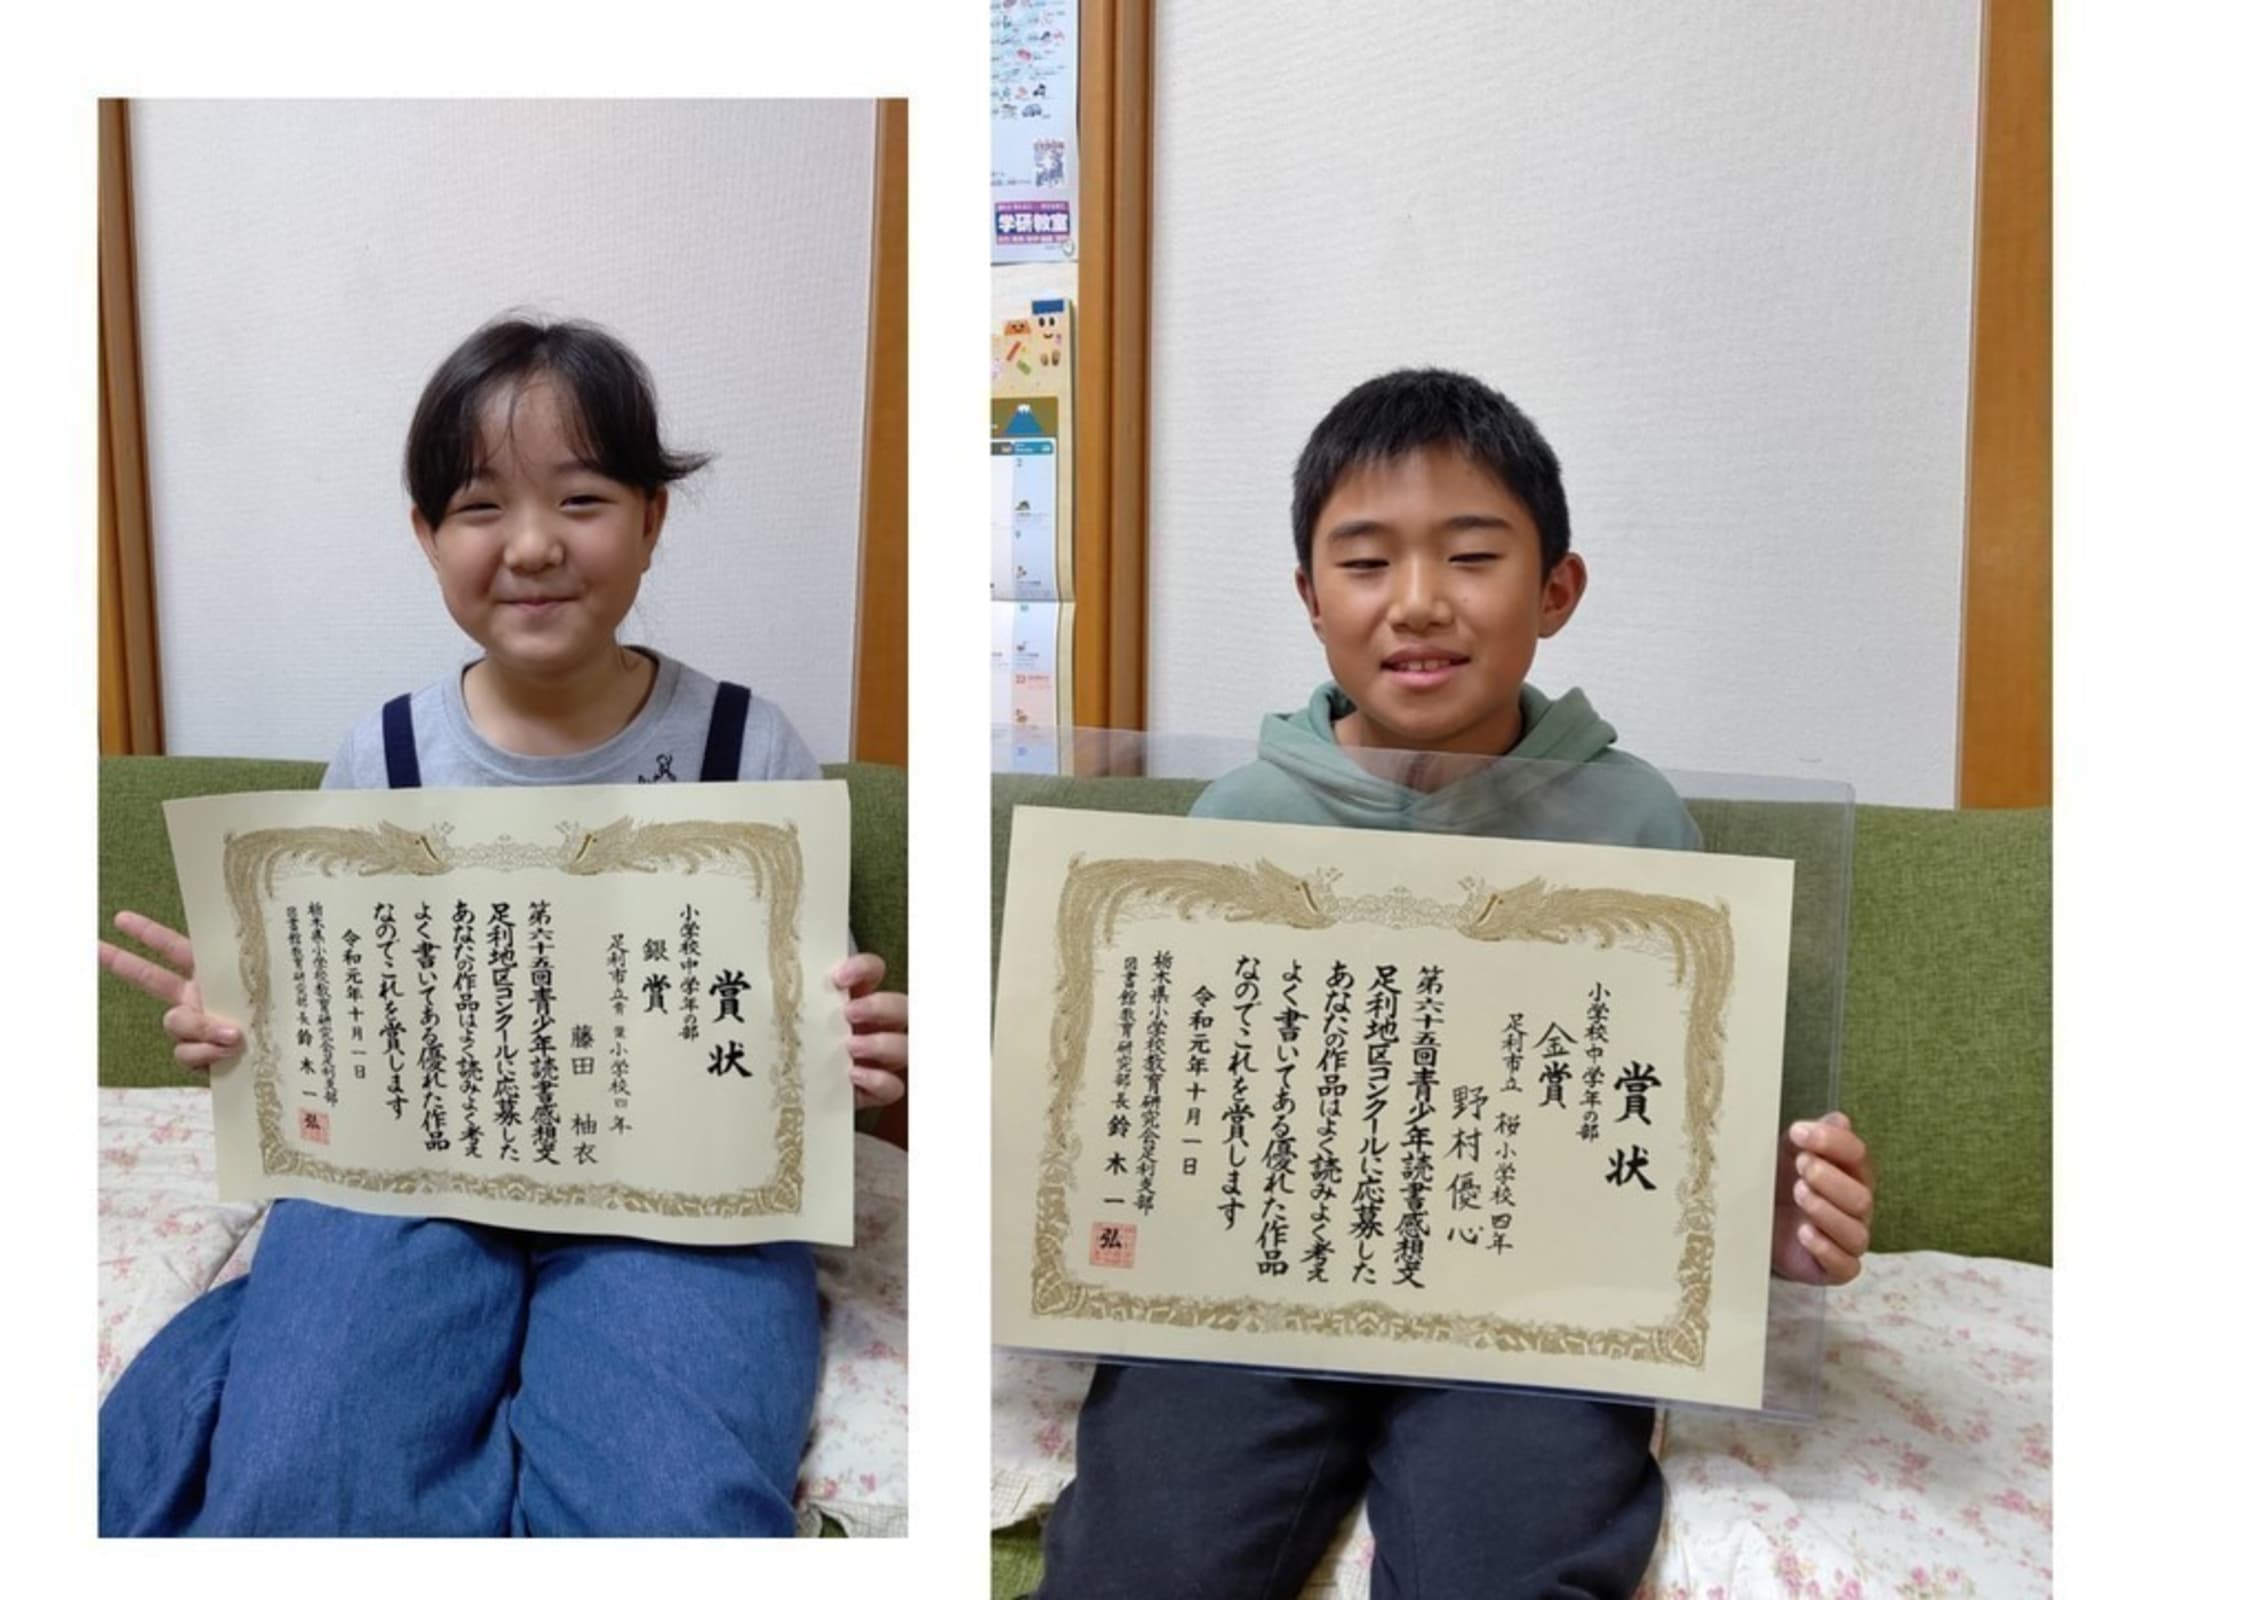 賞状
小学校中学年の部
銀賞
足利市立青葉小学校四年
藤田 柚衣
第六十五回青少年読書感想文
足利地区コンクールに応募した
あなたの作品はよく読みよく考え
よく書いてある優れた作品
なのでこれを賞します
令和元年十月一日
栃木県小学校教育研究会足利支部
図書館教育研究部長 鈴木一弘
学研教室
賞状
小学校中学年の部
金賞
足利市立 桜小学校四年
野村優心
第六十五回青少年読書感想文
足利地区コンクールに応募した
あなたの作品はよく読みよく考え
よく書いてある優れた作品
なのでこれを賞します
令和元年十月一日
栃木県小学校教育研究会足利支部
図書館教育研究部長 鈴木一弘